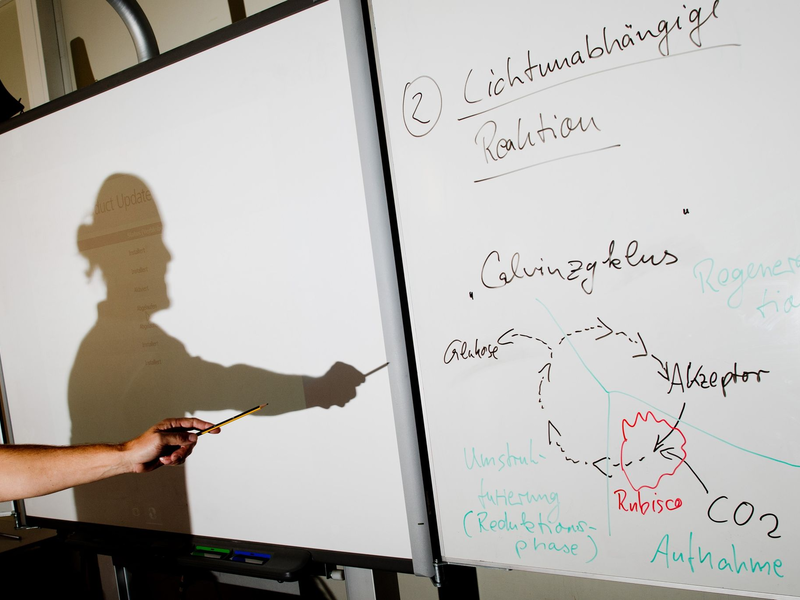 uct Update
② Lichtunabhängige
Reaktion
„Calvinzyklus"
Regenera-
tio
Glukose
Akzeptor
Umstruk-
turierung
(Reduktions-
phase)
Rubisco
CO2
Aufnahme